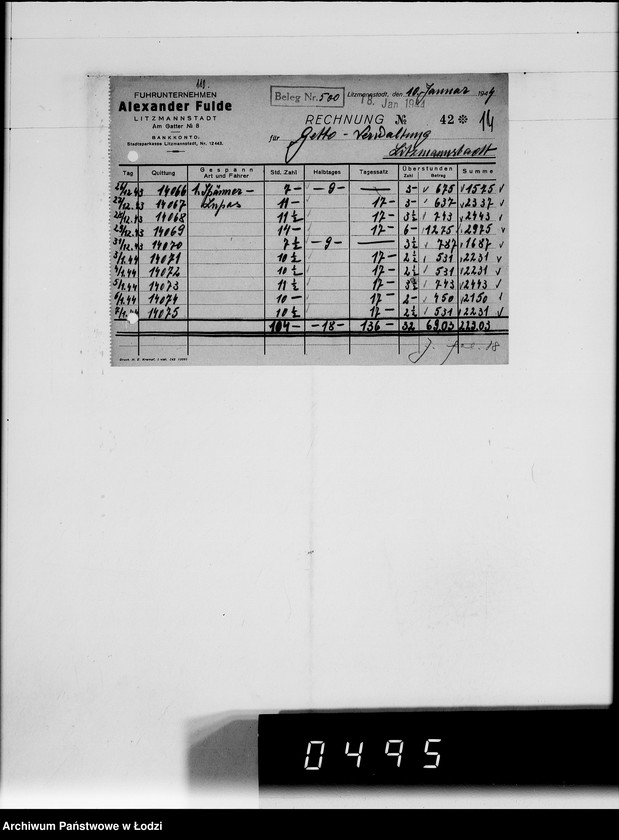 FUHRUNTERNEHMEN
Alexander Fulde
LITZMANNSTADT
Am Gatter № 8
BANKKONTO:
Stadtsparkasse Litzmannstadt, Nr. 12443.
Beleg Nr. 500
Litzmannstadt, den 10. Januar 1944
18. Jan 1944
RECHNUNG № 42 * 14
für Getto - Verwaltung
Litzmannstadt
Tag Quittung Gespann Art und Fahrer Std. Zahl Halbtages Tagessatz Überstunden Zahl Betrag Summe
12.43 14066 7 - - 9 - — 3 - 675 1575
27/12.43 14067 11 - 17 - 3 - 637 2337
28/12.43 14068 11 ½ 17 - 3 ½ 743 2443
29/12.43 14069 14 - 17 - 6 - 1275 2975
31/12.43 14070 7 ½ - 9 - — 3 ½ 787 1687
3/1.44 14071 10 ½ 17 - 2 ½ 531 2231
4/1.44 14072 10 ½ 17 - 2 ½ 531 2231
5/1.44 14073 11 ½ 17 - 3 ½ 743 2443
6/1.44 14074 10 - 17 - 2 - 450 2150
7/1.44 14075 10 ½ 17 - 2 ½ 531 2231
104 - - 18 - 136 - 32 69,03 223,03
0495
Archiwum Państwowe w Łodzi